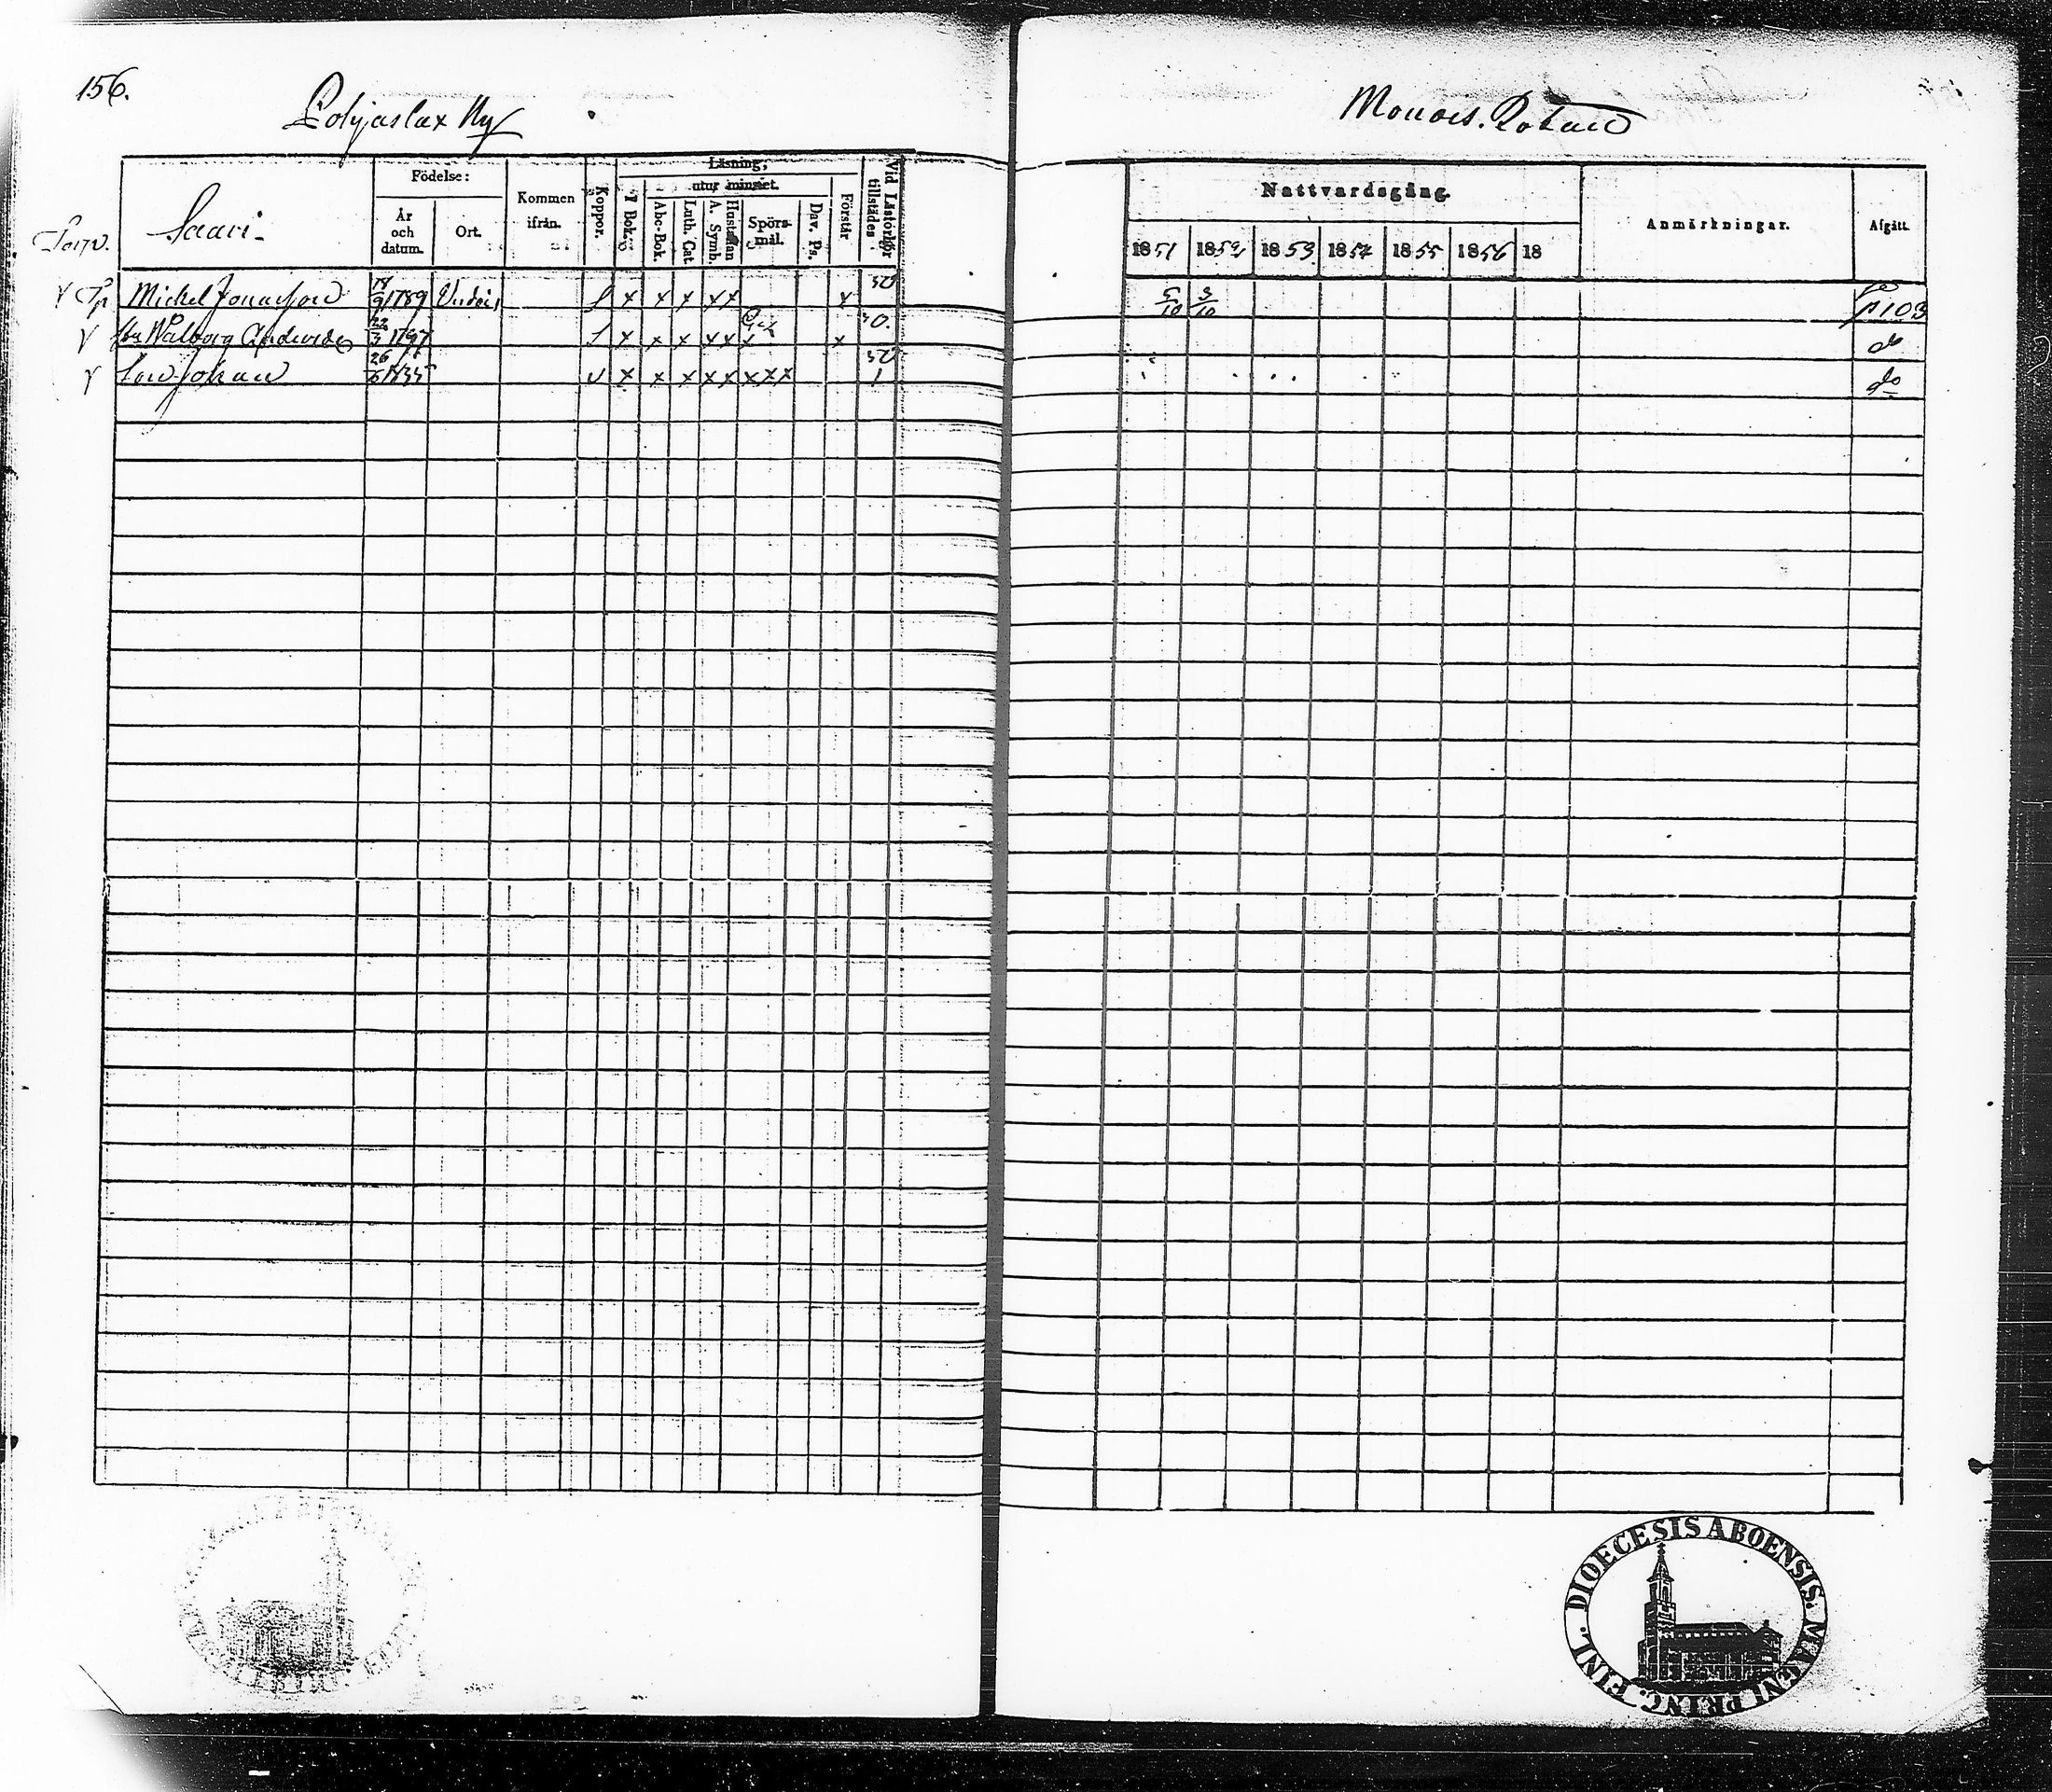 156.
Pohjaslax Ny
Monois. Rotard
Saari.
Torp.
Födelse:
År och datum.
Ort.
Kommen ifrån.
Koppor.
Läsning;
I Bok.
utur minnet.
Abc-Bok.
Luth. Cat.
A. Symb.
Hustaflan
Spörs-mål.
Dav. Ps.
Förstår
Vid Läsförhör tillstädes
Nattvardsgång.
1851 1852 1853 1854 1855 1856 18
Anmärkningar.
Afgått.
Michel Jonasson 18/9 1789 x x x x x x 50 5/10 3/10 p 103
Walborg Andersdr 22/3 1797 x x x x x x x do
Son Johan 26/6 1835 v x x x x x x x x 50 1 do
DIOECESIS ABOENSIS. MAGNI PRINC. FINL.